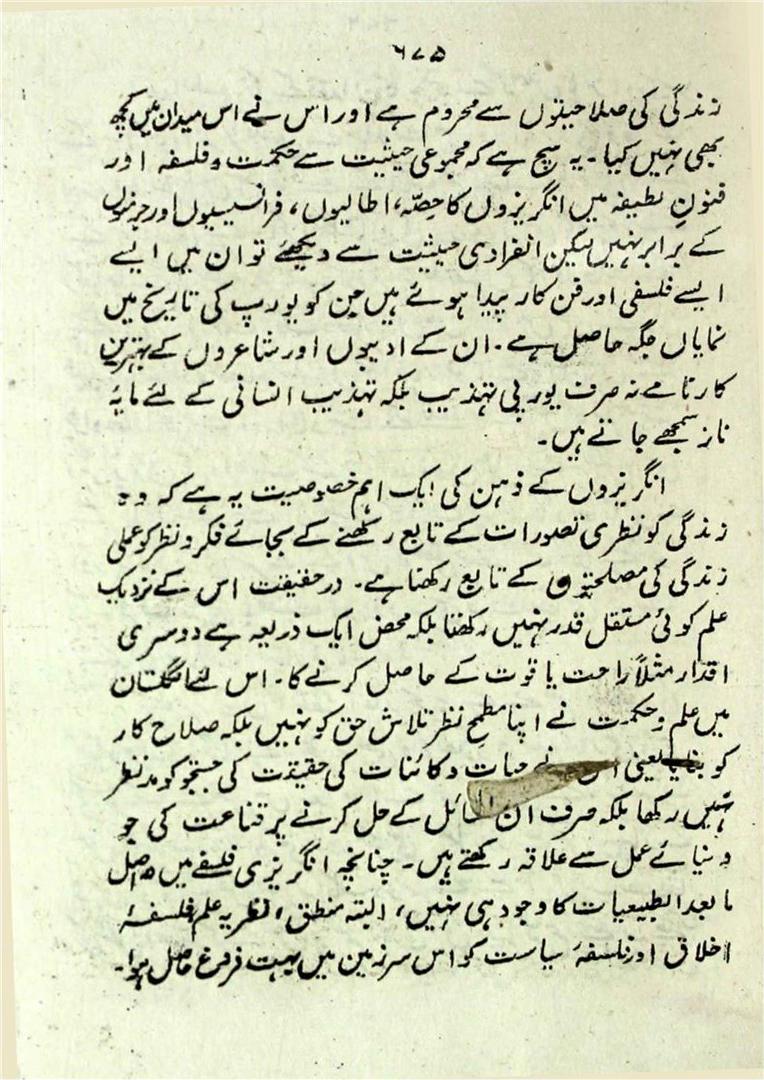 ۶۷۵
زندگی کی صلاحیتوں سے محروم ہے اور اس نے اس میدان میں کچھ
بھی نہیں کیا۔ یہ سچ ہے کہ مجموعی حیثیت سے حکمت و فلسفہ اور
فنونِ لطیفہ میں انگریزوں کا حصّہ، اطالیوں، فرانسیسیوں اور جرمنوں
کے برابر نہیں لیکن انفرادی حیثیت سے دیکھئے تو ان میں ایسے
ایسے فلسفی اور فن کار پیدا ہوئے ہیں جن کو یورپ کی تاریخ میں
نمایاں جگہ حاصل ہے۔ ان کے ادیبوں اور شاعروں کے بہترین
کارنامے نہ صرف یورپی تہذیب بلکہ تہذیب انسانی کے لئے مایۂ
ناز سمجھے جاتے ہیں۔
انگریزوں کے ذہن کی ایک اہم خصوصیت یہ ہے کہ وہ
زندگی کو نظری تصورات کے تابع رکھنے کے بجائے فکر و نظر کو عملی
زندگی کی مصلحتوں کے تابع رکھتا ہے۔ درحقیقت اس کے نزدیک
علم کوئی مستقل قدر نہیں رکھتا بلکہ محض ایک ذریعہ ہے دوسری
اقدار مثلاً راحت یا قوت کے حاصل کرنے کا۔ اس لئے انگلستان
میں علم و حکمت نے اپنا مطمح نظر تلاش حق کو نہیں بلکہ صلاح کار
کو بنایا یعنی اس نے حیات و کائنات کی حقیقت کی جستجو کو مدنظر
نہیں رکھا بلکہ صرف ان مسائل کے حل کرنے پر قناعت کی جو
دنیائے عمل سے علاقہ رکھتے ہیں۔ چنانچہ انگریزی فلسفے میں دراصل
مابعدالطبیعیات کا وجود ہی نہیں، البتہ منطق، نظریہ علم، فلسفۂ
اخلاق اور فلسفۂ سیاست کو اس سرزمین میں بہت فروغ حاصل ہوا۔